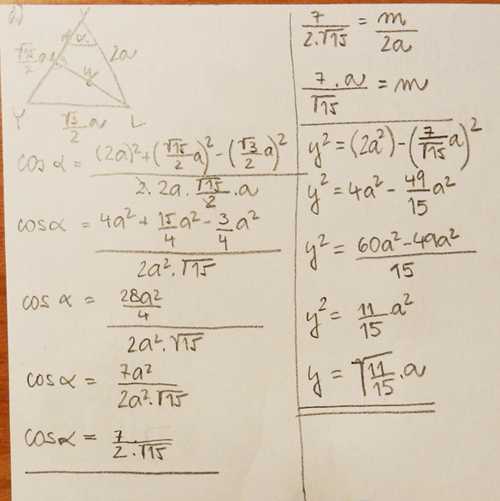 2)
α
√15/2 a
2a
y
Y
√3/2 a
L
cos α = ((2a)² + (√15/2 a)² - (√3/2 a)²) / (2·2a·√15/2·a)
cos α = (4a² + 15/4 a² - 3/4 a²) / (2a²·√15)
cos α = (28a²/4) / (2a²·√15)
cos α = 7a² / (2a²·√15)
cos α = 7 / (2·√15)
7/(2·√15) = m/2a
7·a/√15 = m
y² = (2a²) - (7/√15 a)²
y² = 4a² - 49/15 a²
y² = (60a² - 49a²)/15
y² = 11/15 a²
y = √(11/15)·a